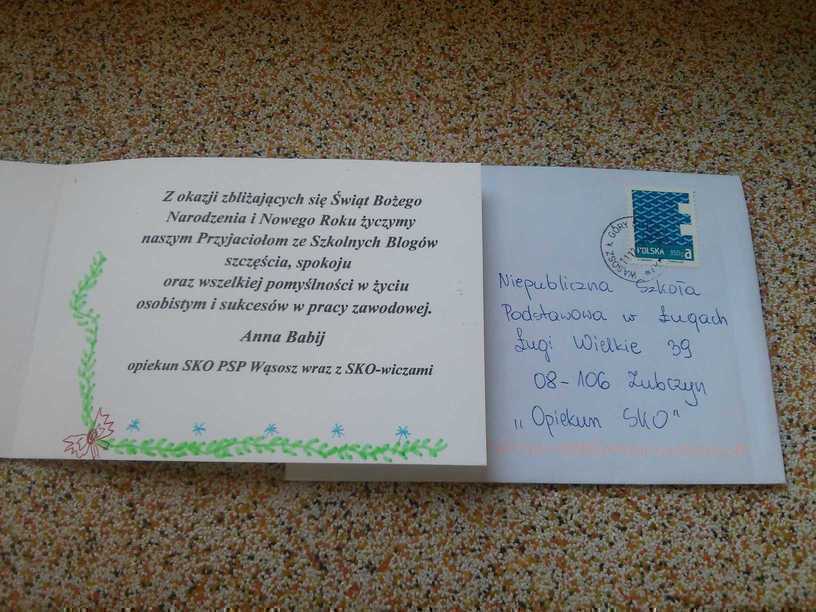 Z okazji zbliżających się Świąt Bożego
Narodzenia i Nowego Roku życzymy
naszym Przyjaciołom ze Szkolnych Blogów
szczęścia, spokoju
oraz wszelkiej pomyślności w życiu
osobistym i sukcesów w pracy zawodowej.
Anna Babij
opiekun SKO PSP Wąsosz wraz z SKO-wiczami
POLSKA 350g a
WĄSOSZ k. GÓRY
Niepubliczna Szkoła
Podstawowa w Ługach
Ługi Wielkie 39
08-106 Zubczyn
„Opiekun SKO"